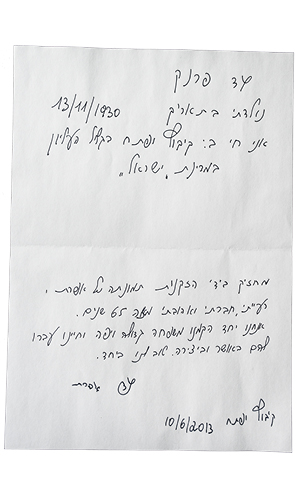 עד פרנק
נולדתי בתאריך 13/11/1930
אני חי ב: קיבוץ יפתח בגליל העליון
במדינת "ישראל"
מחזיק בידי הזקנות תמונתה של אפרת,
רעייתי, חברתי ואהובתי מעל 65 שנים.
אנחנו יחד הקמנו משפחה גדולה ויפה וחיינו עברו
להם באושר וביצירה. טוב לנו ביחד.
עד אפרת
קיבוץ יפתח 10/6/2013